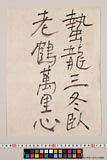 蟄龍三冬臥
老鶴萬里心